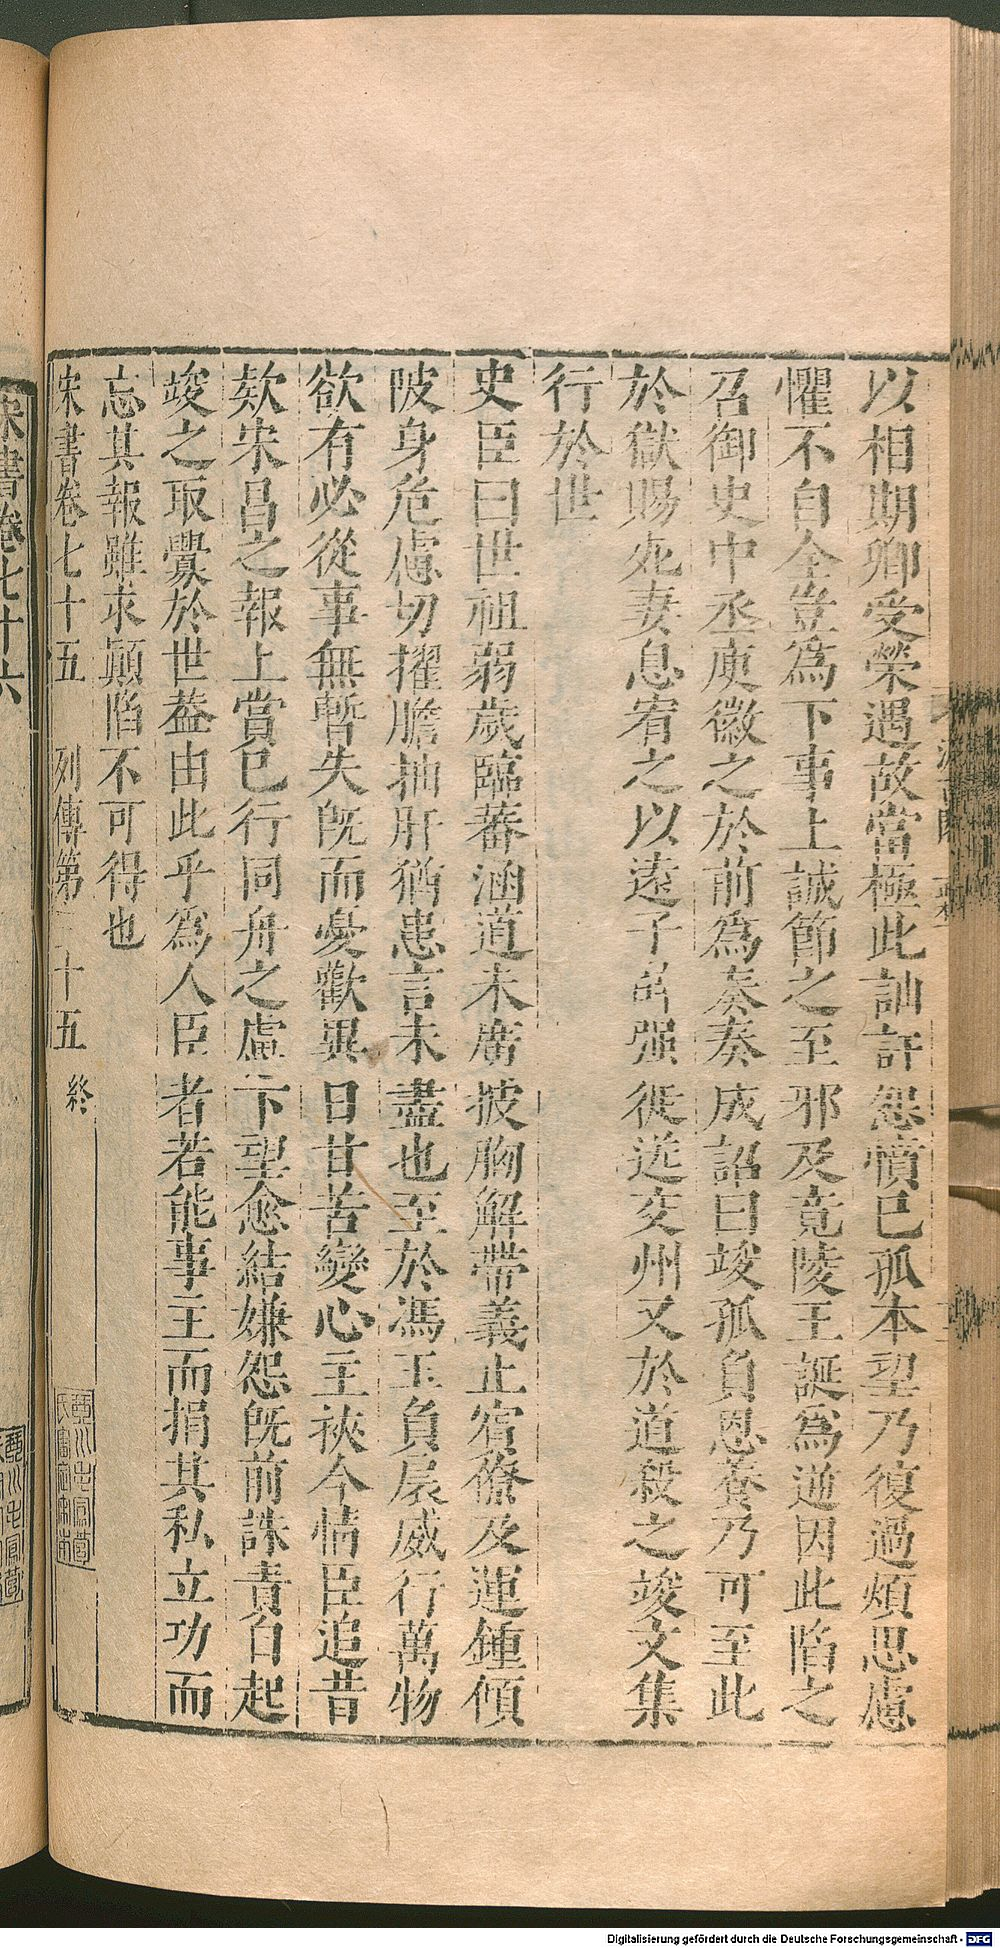 以相期卿受榮遇故當極此訕訐怨憤已孤本望乃復過煩思慮
懼不自全豈爲下事上誠節之至邪及竟陵王誕爲逆因此陷之
召御史中丞庾徽之於前爲奏奏成詔曰竣孤負恩養乃可至此
於獄賜死妻息宥之以遠子辟强徙送交州又於道殺之竣文集
行於世
史臣曰世祖弱歲臨蕃涵道未廣披胸解帶義止賓僚及運鍾傾
陂身危慮切擢膽抽肝猶患言未盡也至於馮玉負扆威行萬物
欲有必從事無暫失旣而憂歡異日甘苦變心主挾今情臣追昔
欵宋昌之報上賞已行同舟之慮下望愈結嫌怨旣前誅責自起
竣之取釁於世葢由此乎爲人臣者若能事主而捐其私立功而
忘其報雖求顚陷不可得也
宋書卷七十五 列傳第三十五 終
宋書卷七十六
Digitalisierung gefördert durch die Deutsche Forschungsgemeinschaft - DFG